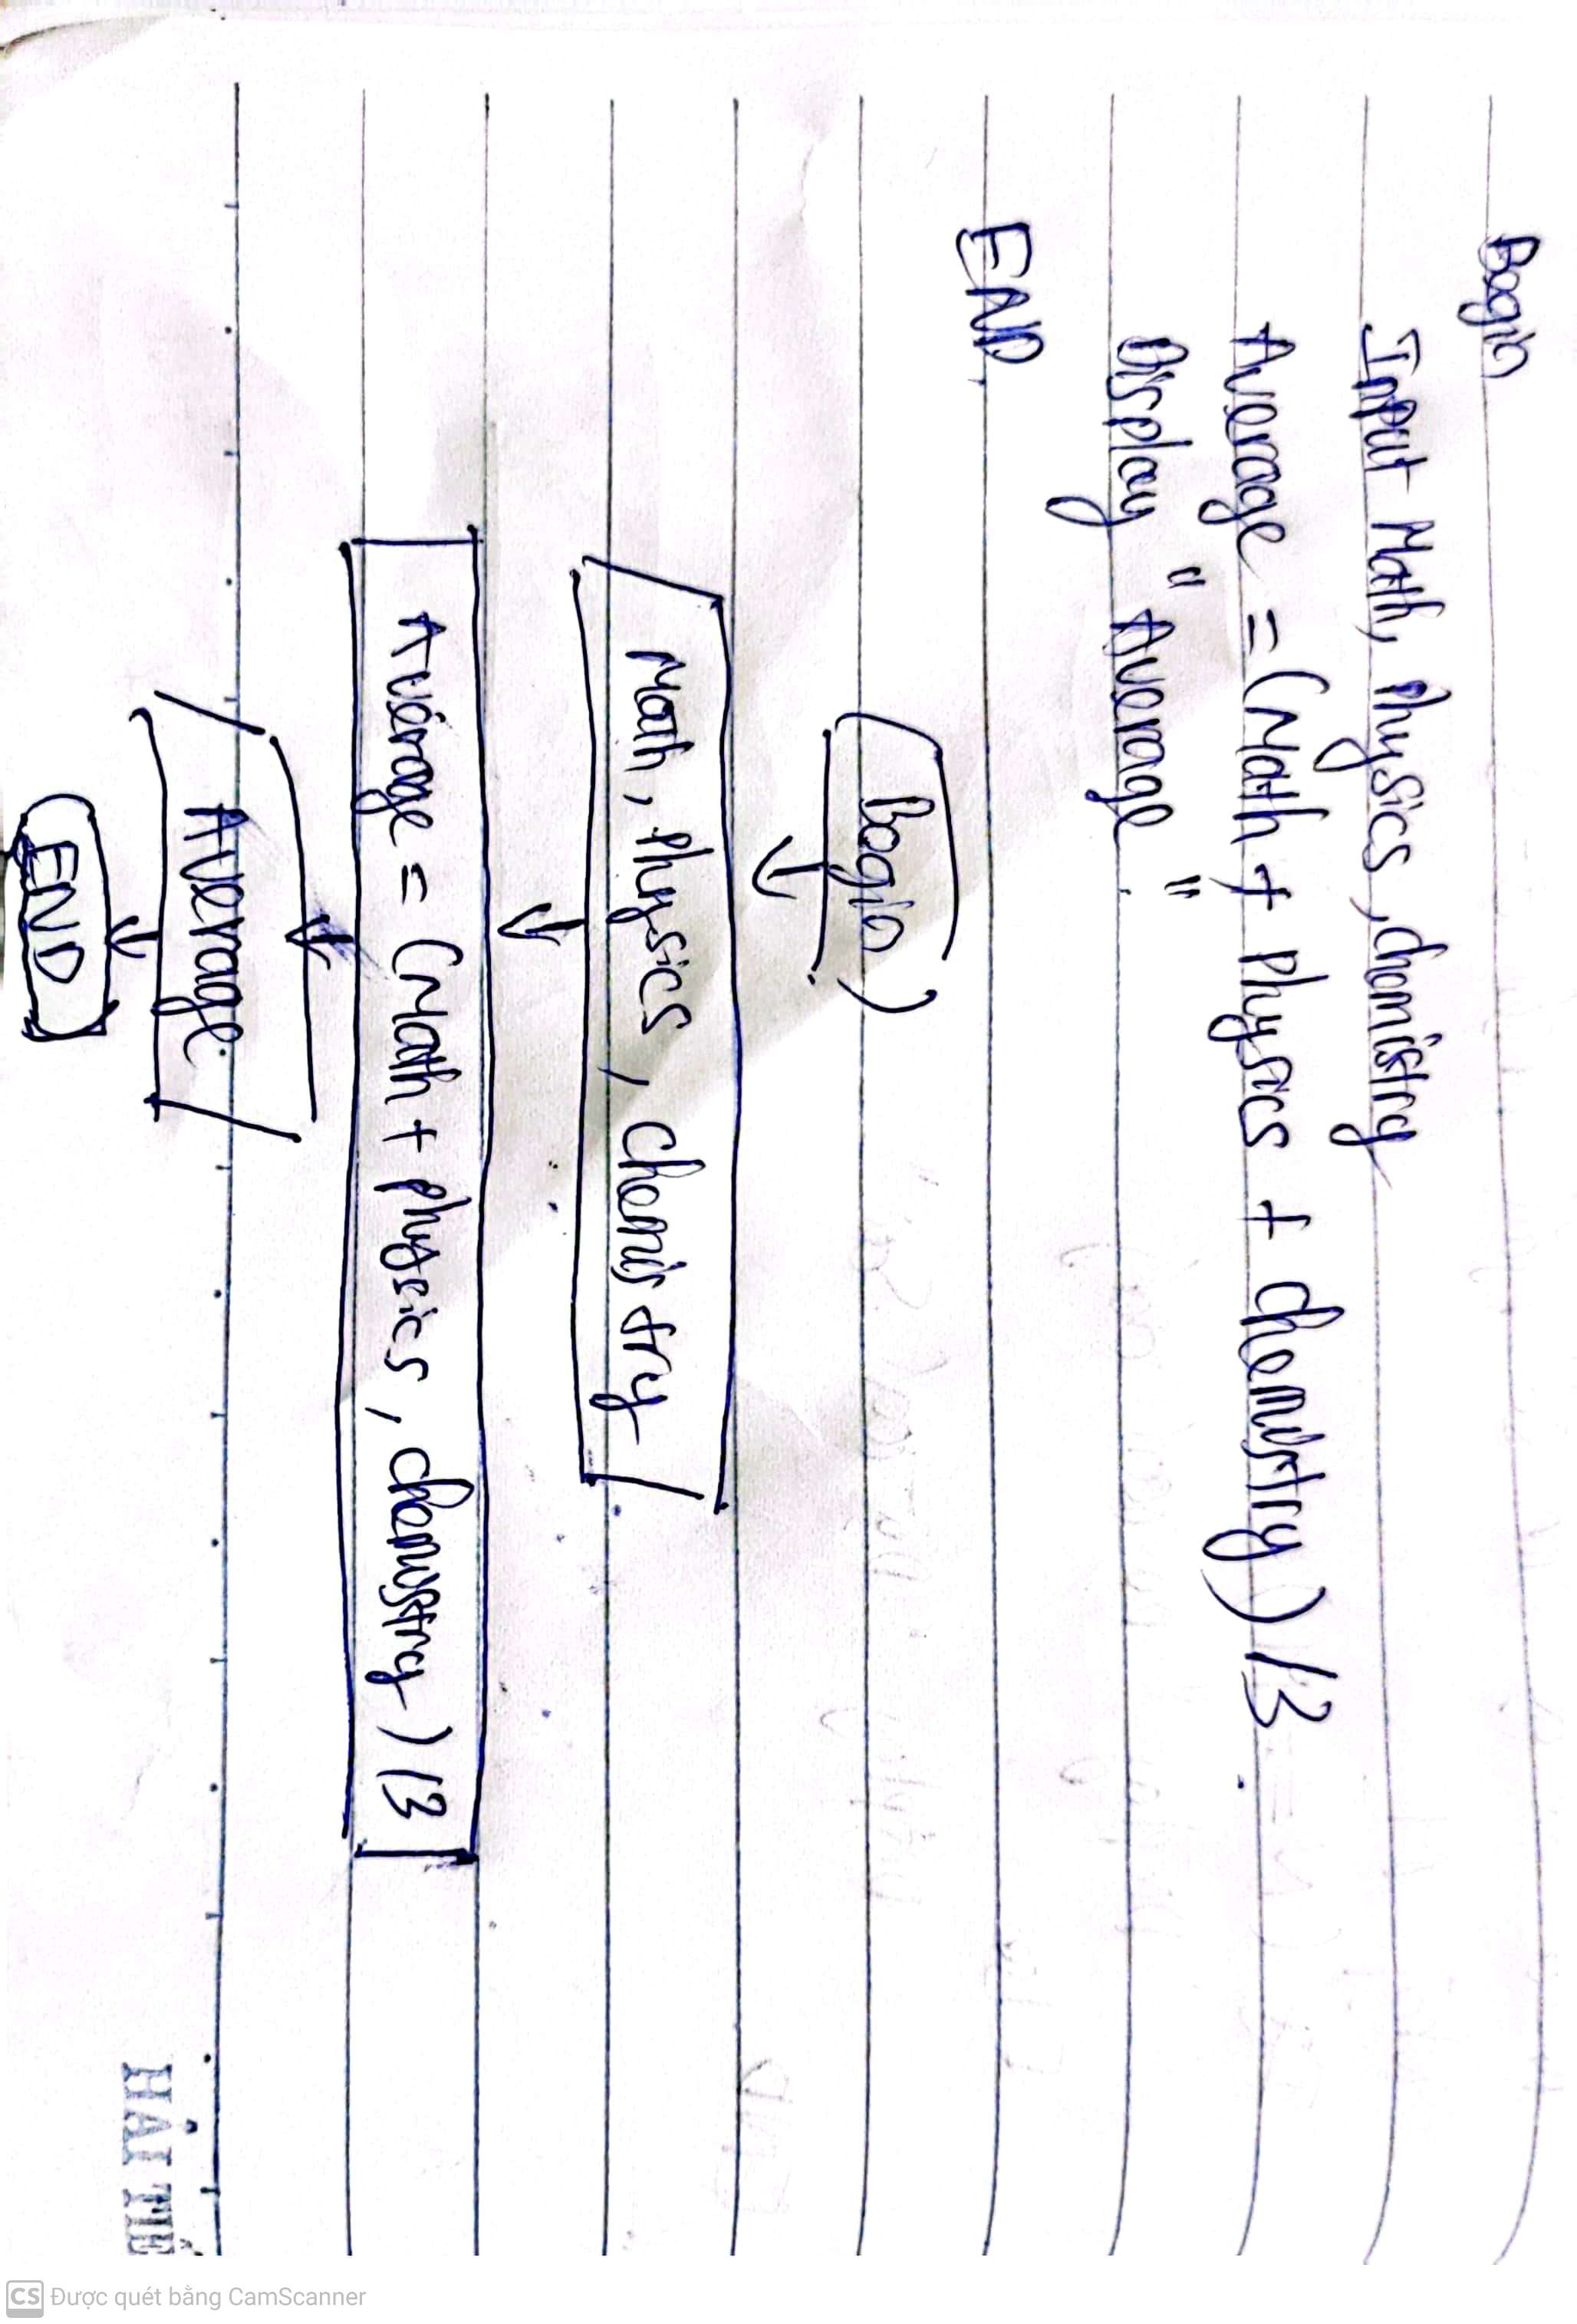 Begin
Input Math, Physics, chemistry
Average = (Math + Physics + chemistry) / 3
Display " Average "
END
Begin
Math, Physics, Chemistry
Average = (Math + Physics, chemistry) / 3
Average
END
HẢI TIẾ
CS Được quét bằng CamScanner